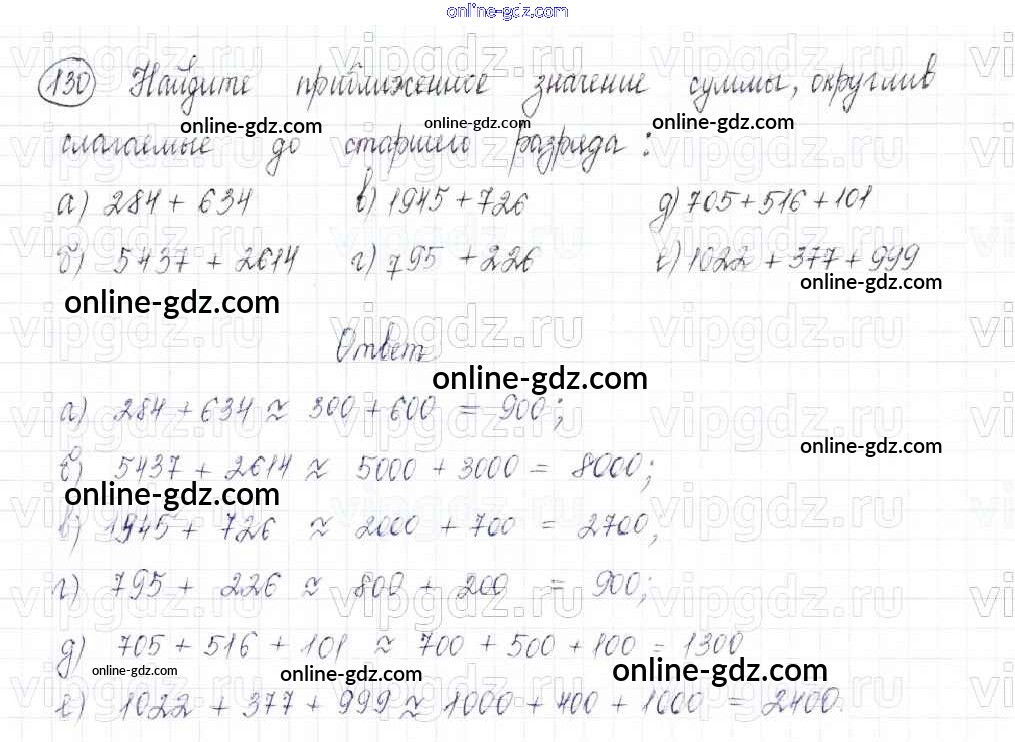 online-gdz.com
130 Найдите приближенное значение суммы, округлив
online-gdz.com online-gdz.com online-gdz.com
слагаемые до старшего разряда:
а) 284 + 634 в) 1945 + 726 д) 705 + 516 + 101
б) 5437 + 2614 г) 795 + 226 е) 1022 + 377 + 999
online-gdz.com online-gdz.com
vipgdz.ru
Ответ
online-gdz.com
а) 284 + 634 ≈ 300 + 600 = 900;
online-gdz.com
б) 5437 + 2614 ≈ 5000 + 3000 = 8000;
online-gdz.com
в) 1945 + 726 ≈ 2000 + 700 = 2700,
г) 795 + 226 ≈ 800 + 200 = 900;
д) 705 + 516 + 101 ≈ 700 + 500 + 100 = 1300
online-gdz.com online-gdz.com online-gdz.com
е) 1022 + 377 + 999 ≈ 1000 + 400 + 1000 = 2400.